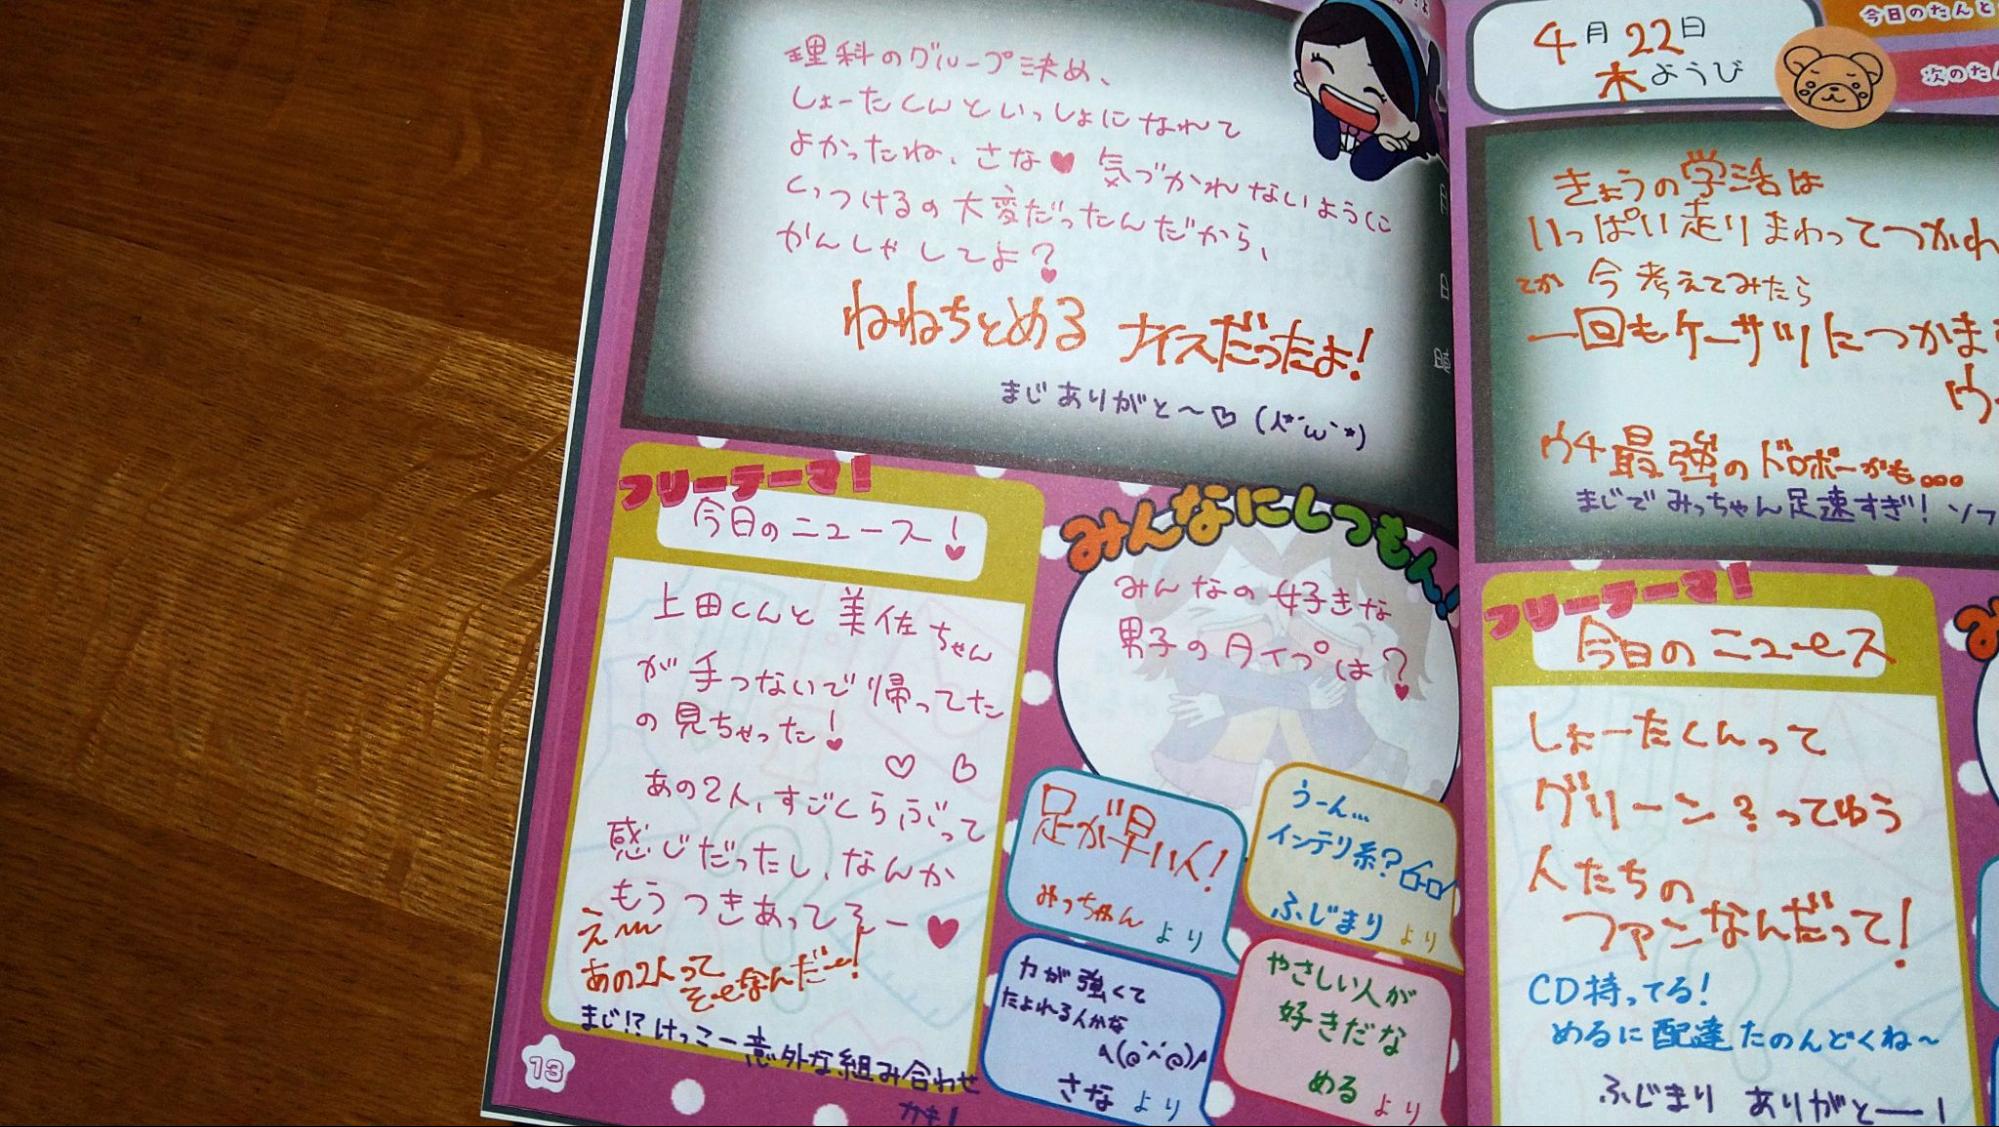 理科のグループ決め、
しょーたくんといっしょになれて
よかったね、さな♥ 気づかれないように
くっつけるの大変だったんだから、
かんしゃしてよ?
ねねちとめる ナイスだったよ!
まじありがと〜♡
フリーテーマ!
今日のニュース!
上田くんと美佐ちゃん
が手つないで帰ってた
の見ちゃった!
♡ ♡
あの2人、すごくらぶって
感じだったし、なんか
もうつきあってるー♥
え〜
あの2人って
そーなんだー!
まじ!?けっこー意外な組み合わせ
かも!
13
みんなにしつもん!
みんなの好きな
男子のタイプは?
足が早い人!
みっちゃん より
うーん...
インテリ系?
ふじまり より
力が強くて
たよれる人かな
さな より
やさしい人が
好きだな
める より
4月22日
木ようび
今日のたんと
次のたん
きょうの学活は
いっぱい走りまわってつかれ
てか 今考えてみたら
一回もケーサツにつかま
ウ
ウチ最強のドロボーかも...
まじでみっちゃん足速すぎ! ソフ
フリーテーマ!
今日のニュース
しょーたくんって
グリーン?ってゆう
人たちの
ファンなんだって!
CD持ってる!
めるに配達たのんどくね〜
ふじまり ありがとーー!